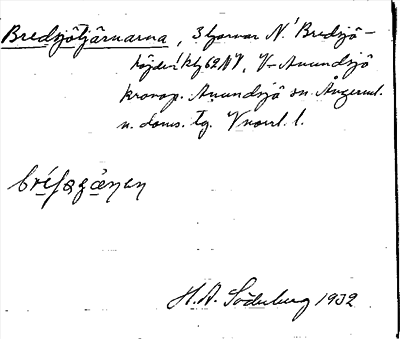 Bredsjötjärnarna, 3 tjärnar N. Bredsjö-
höjden kfg 62 NV, V-Anundsjö
kronop. Anundsjö sn. Ångerml.
n. doms. tg. Vnorrl. l.
H.A. Söderberg 1932